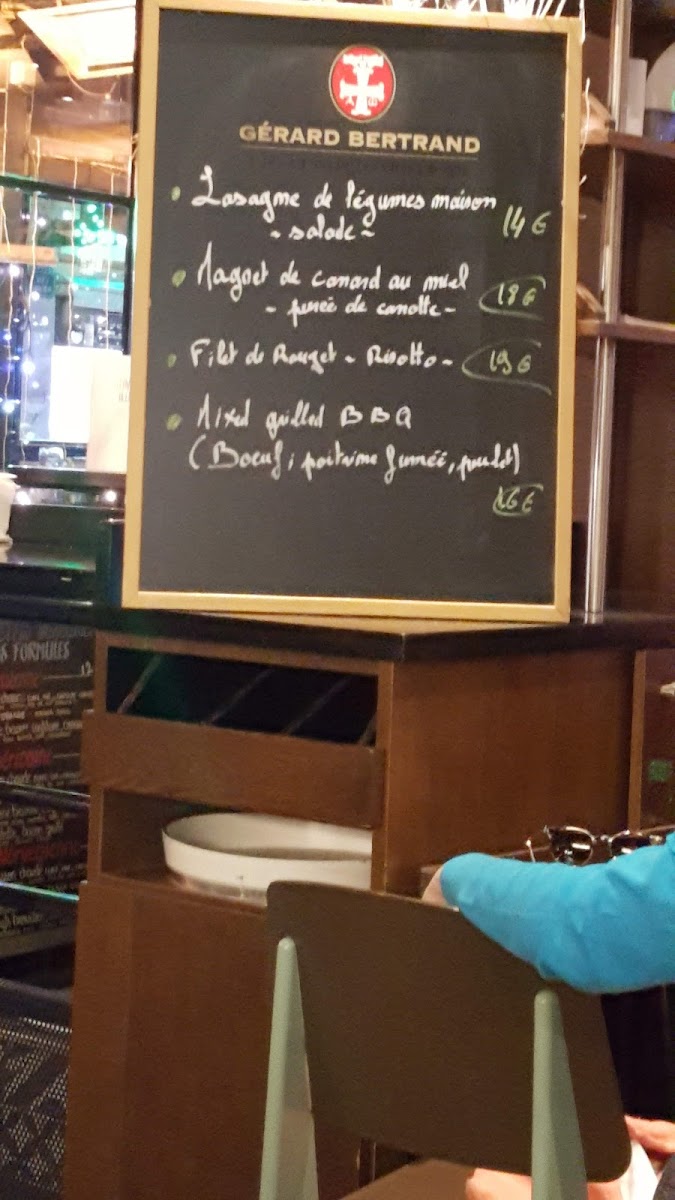 GÉRARD BERTRAND
• Lasagne de légumes maison
~ salade ~ 14€
• Magret de canard au miel
- purée de carotte - 18€
• Filet de Rouget - Risotto - 19€
• Mixed grilled BBQ
(Boeuf, poitrine fumée, poulet)
16€
FORMULES